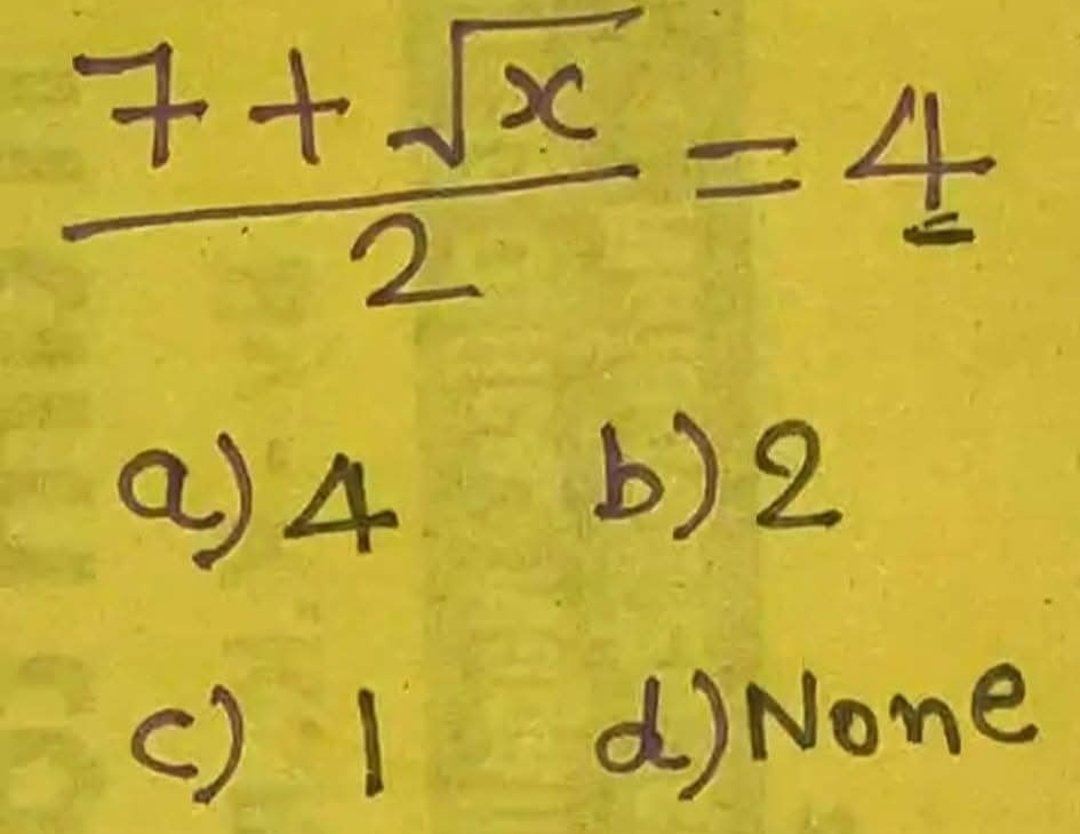 7 + √x
——— = 4
2
a) 4 b) 2
c) 1 d) None